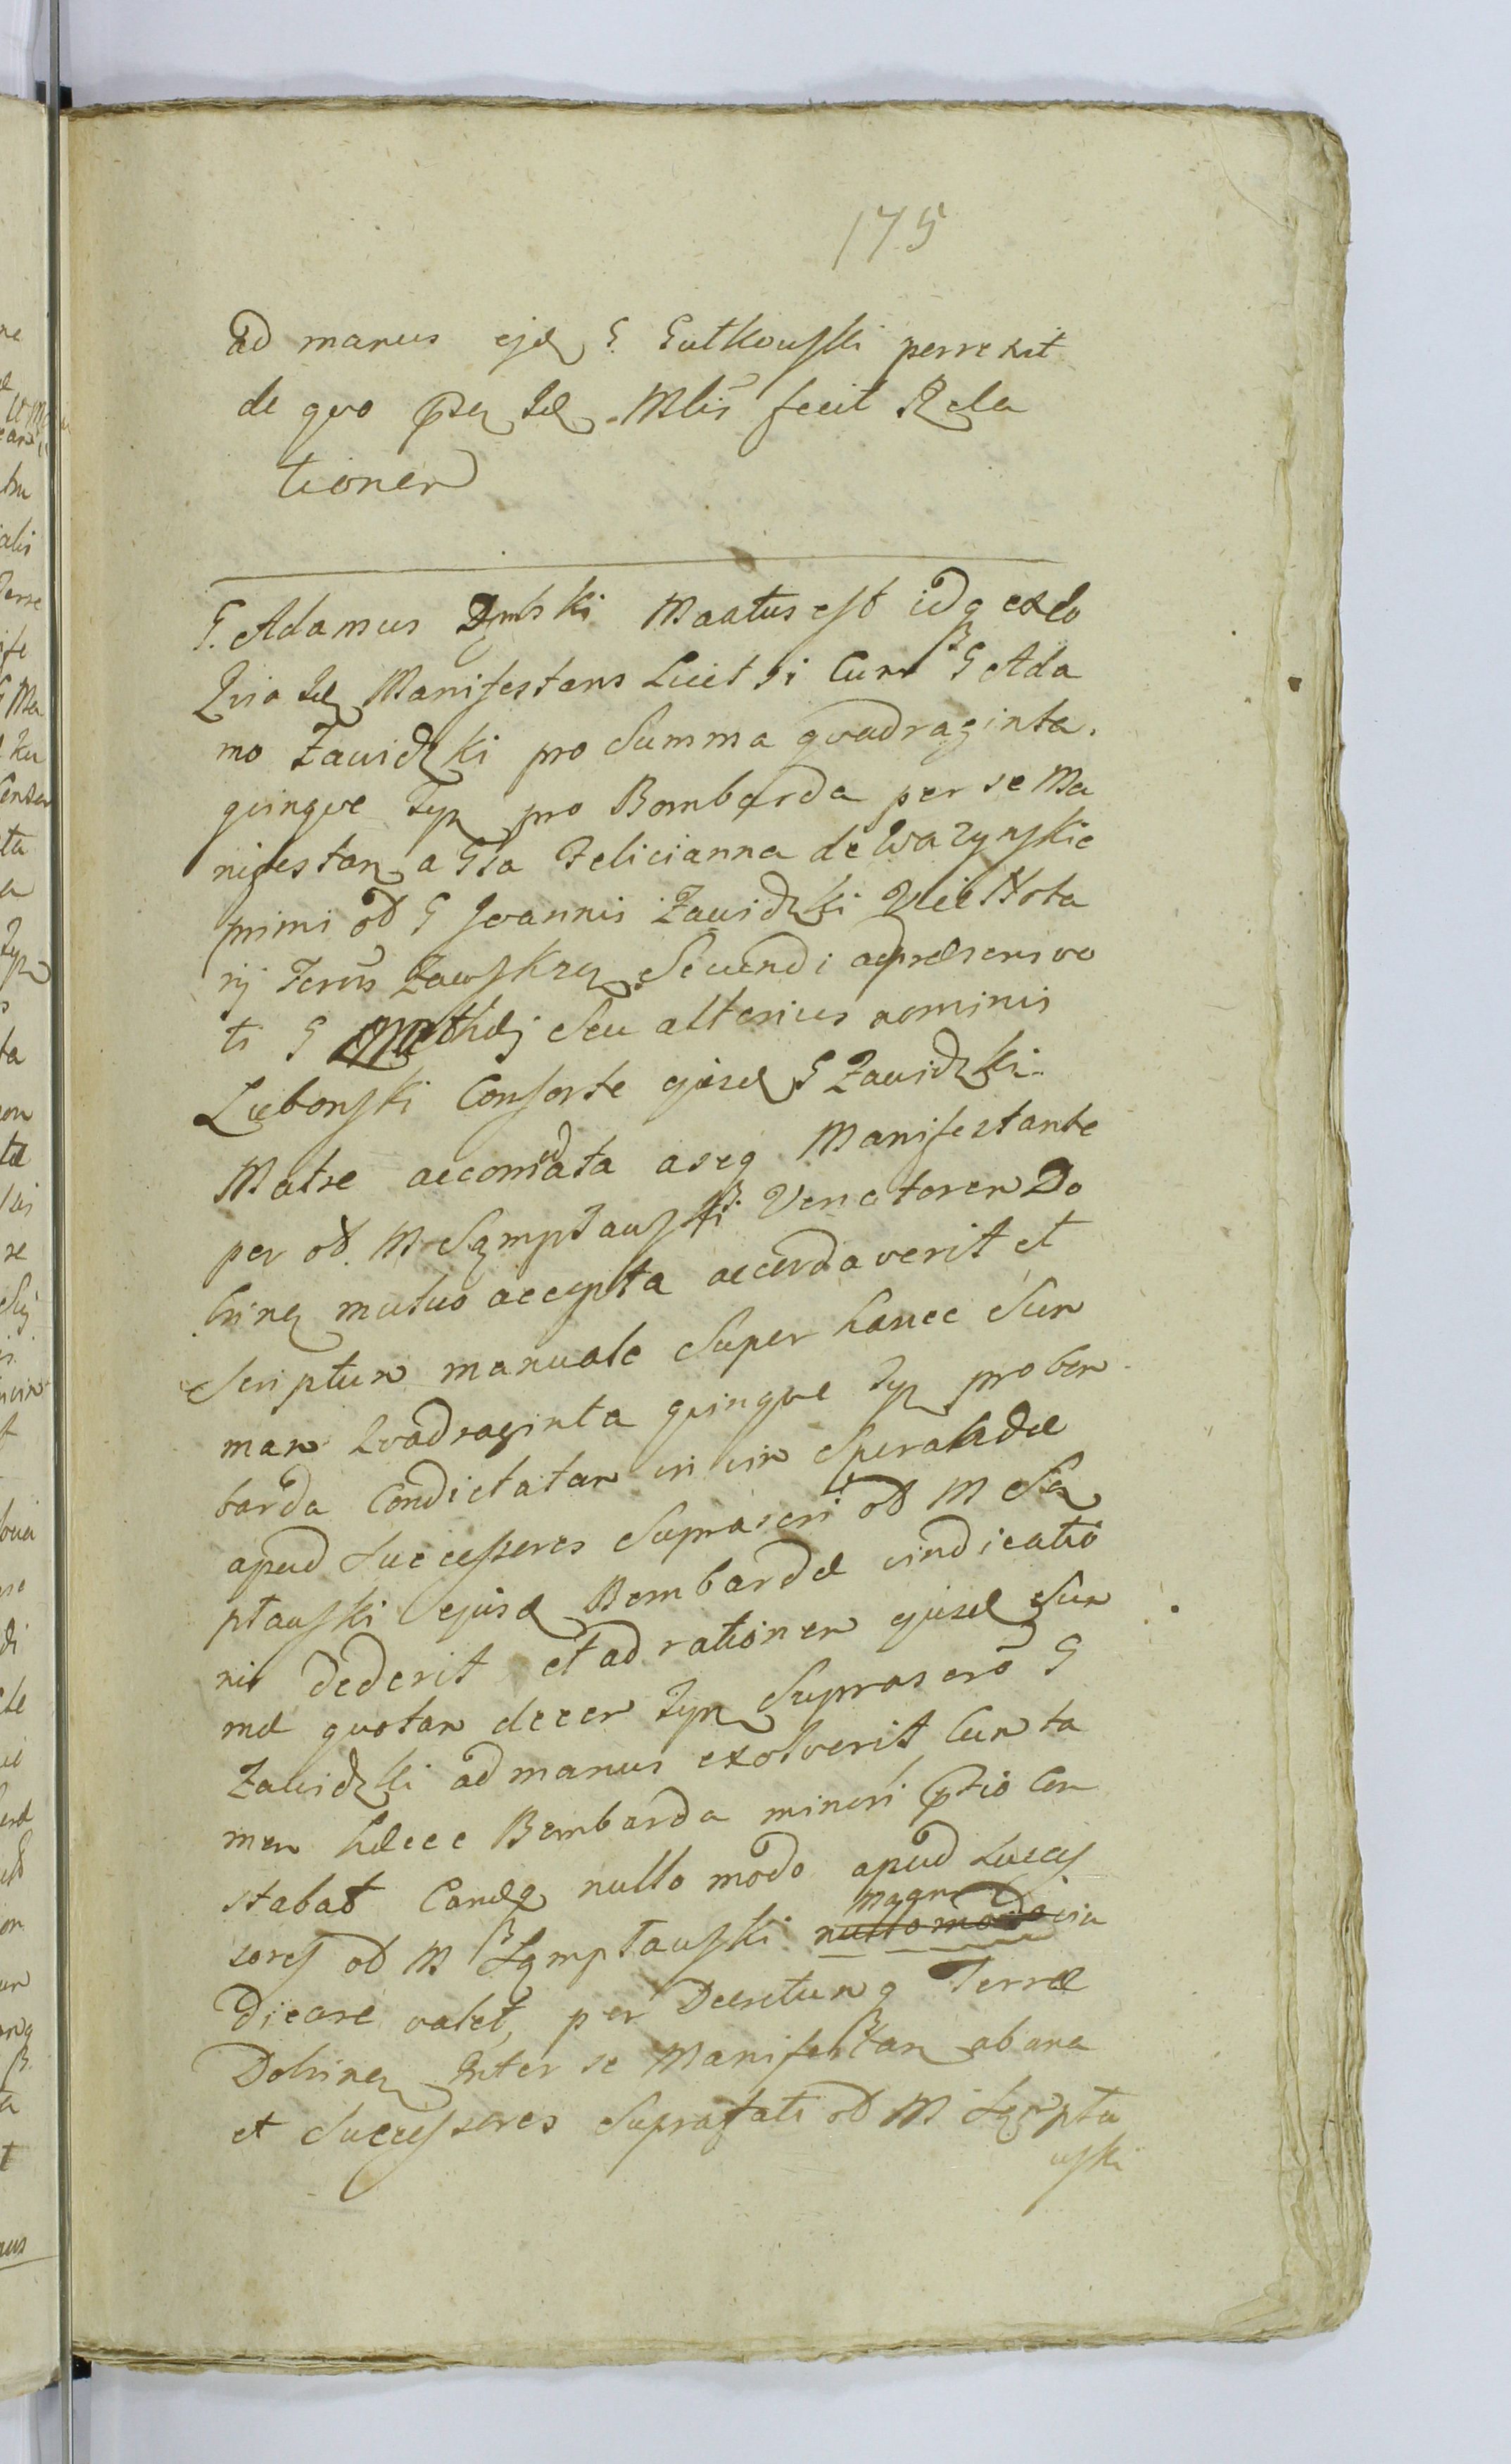 175
ad manus ejd G. Gutkowski perrexit
de quo Id Mlis fecit Rela
tionem
G. Adamus Dmbski Maatus est idq ex eo
Quia Id Manifestans Licet si Cum G Ada
mo Zawidzki pro Summa quadraginta
quinque Typ pro Bombarda per se Ma
nifestan a Gsa Felicianna de Wazynskie
primi od G Joannis Zawidzki Vice Nota
rij Terris Zawskrz Secundi ad præsens vo
ti G Mathæj Seu alterius nominis
Lubonski Consorte ejusd G Zawidzki
Matre accomodata aseq Manifestante
per od. M Symptauski Venatorem Do
brinen mutuo accepta accordaverit et
Scriptum manuale Super hance Sum
mam Quadraginta quinque Typ pro bom
barda Condictatam in vim Sperandæ
apud Successores Suprascri od M Sę
ptauski ejusd Bombardæ vindicatio
nis dederit et ad rationem ejusd Sum
mæ quotam decem Typ Suprascro G
Zawidzki ad manus exolverit Cum ta
men hæcce Bombarda minori ptio Con
stabat Candq nullo modo apud Succes
sores od M Sęmptauski nullo modo vin
dicare valet, per Decretum q Terræ
Dobrinen Inter se Manifestan ab una
et Successores Suprafati od M Sęmpta
uski